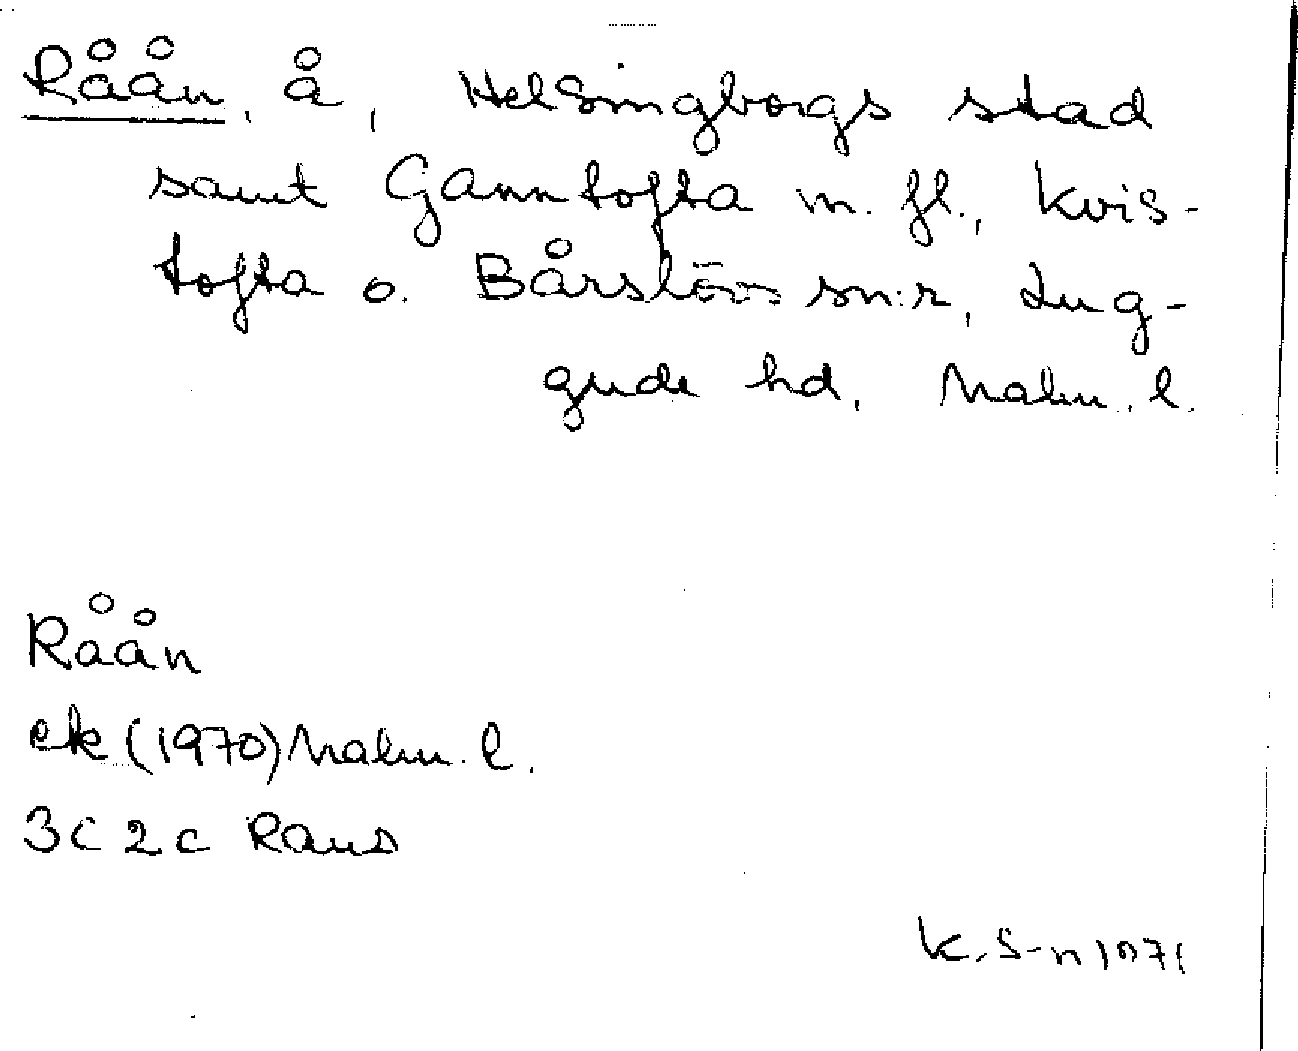 Råån, å, Helsingborgs stad
samt Gantofta m. fl., Kvis-
tofta o. Bårslövs sn:r, Lug-
gude hd, Malm. l.
Råån
ek (1970) Malm. l.
3C 2c Raus
K. S-n 1971